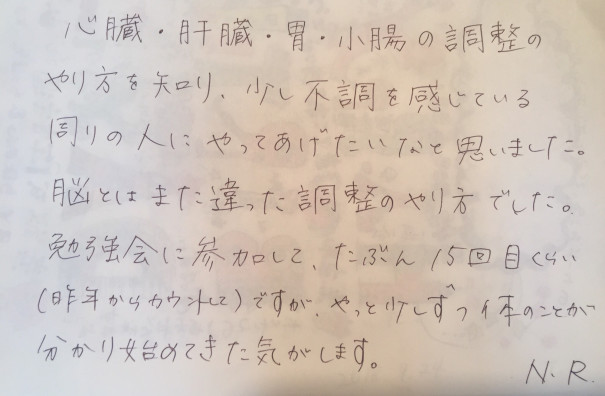 心臓・肝臓・胃・小腸の調整の
やり方を知り、少し不調を感じている
周りの人にやってあげたいなと思いました。
脳とはまた違った調整のやり方でした。
勉強会に参加して、たぶん15回目くらい
(昨年からカウントして)ですが、やっと少しずつ体のことが
分かり始めてきた気がします。
N.R.